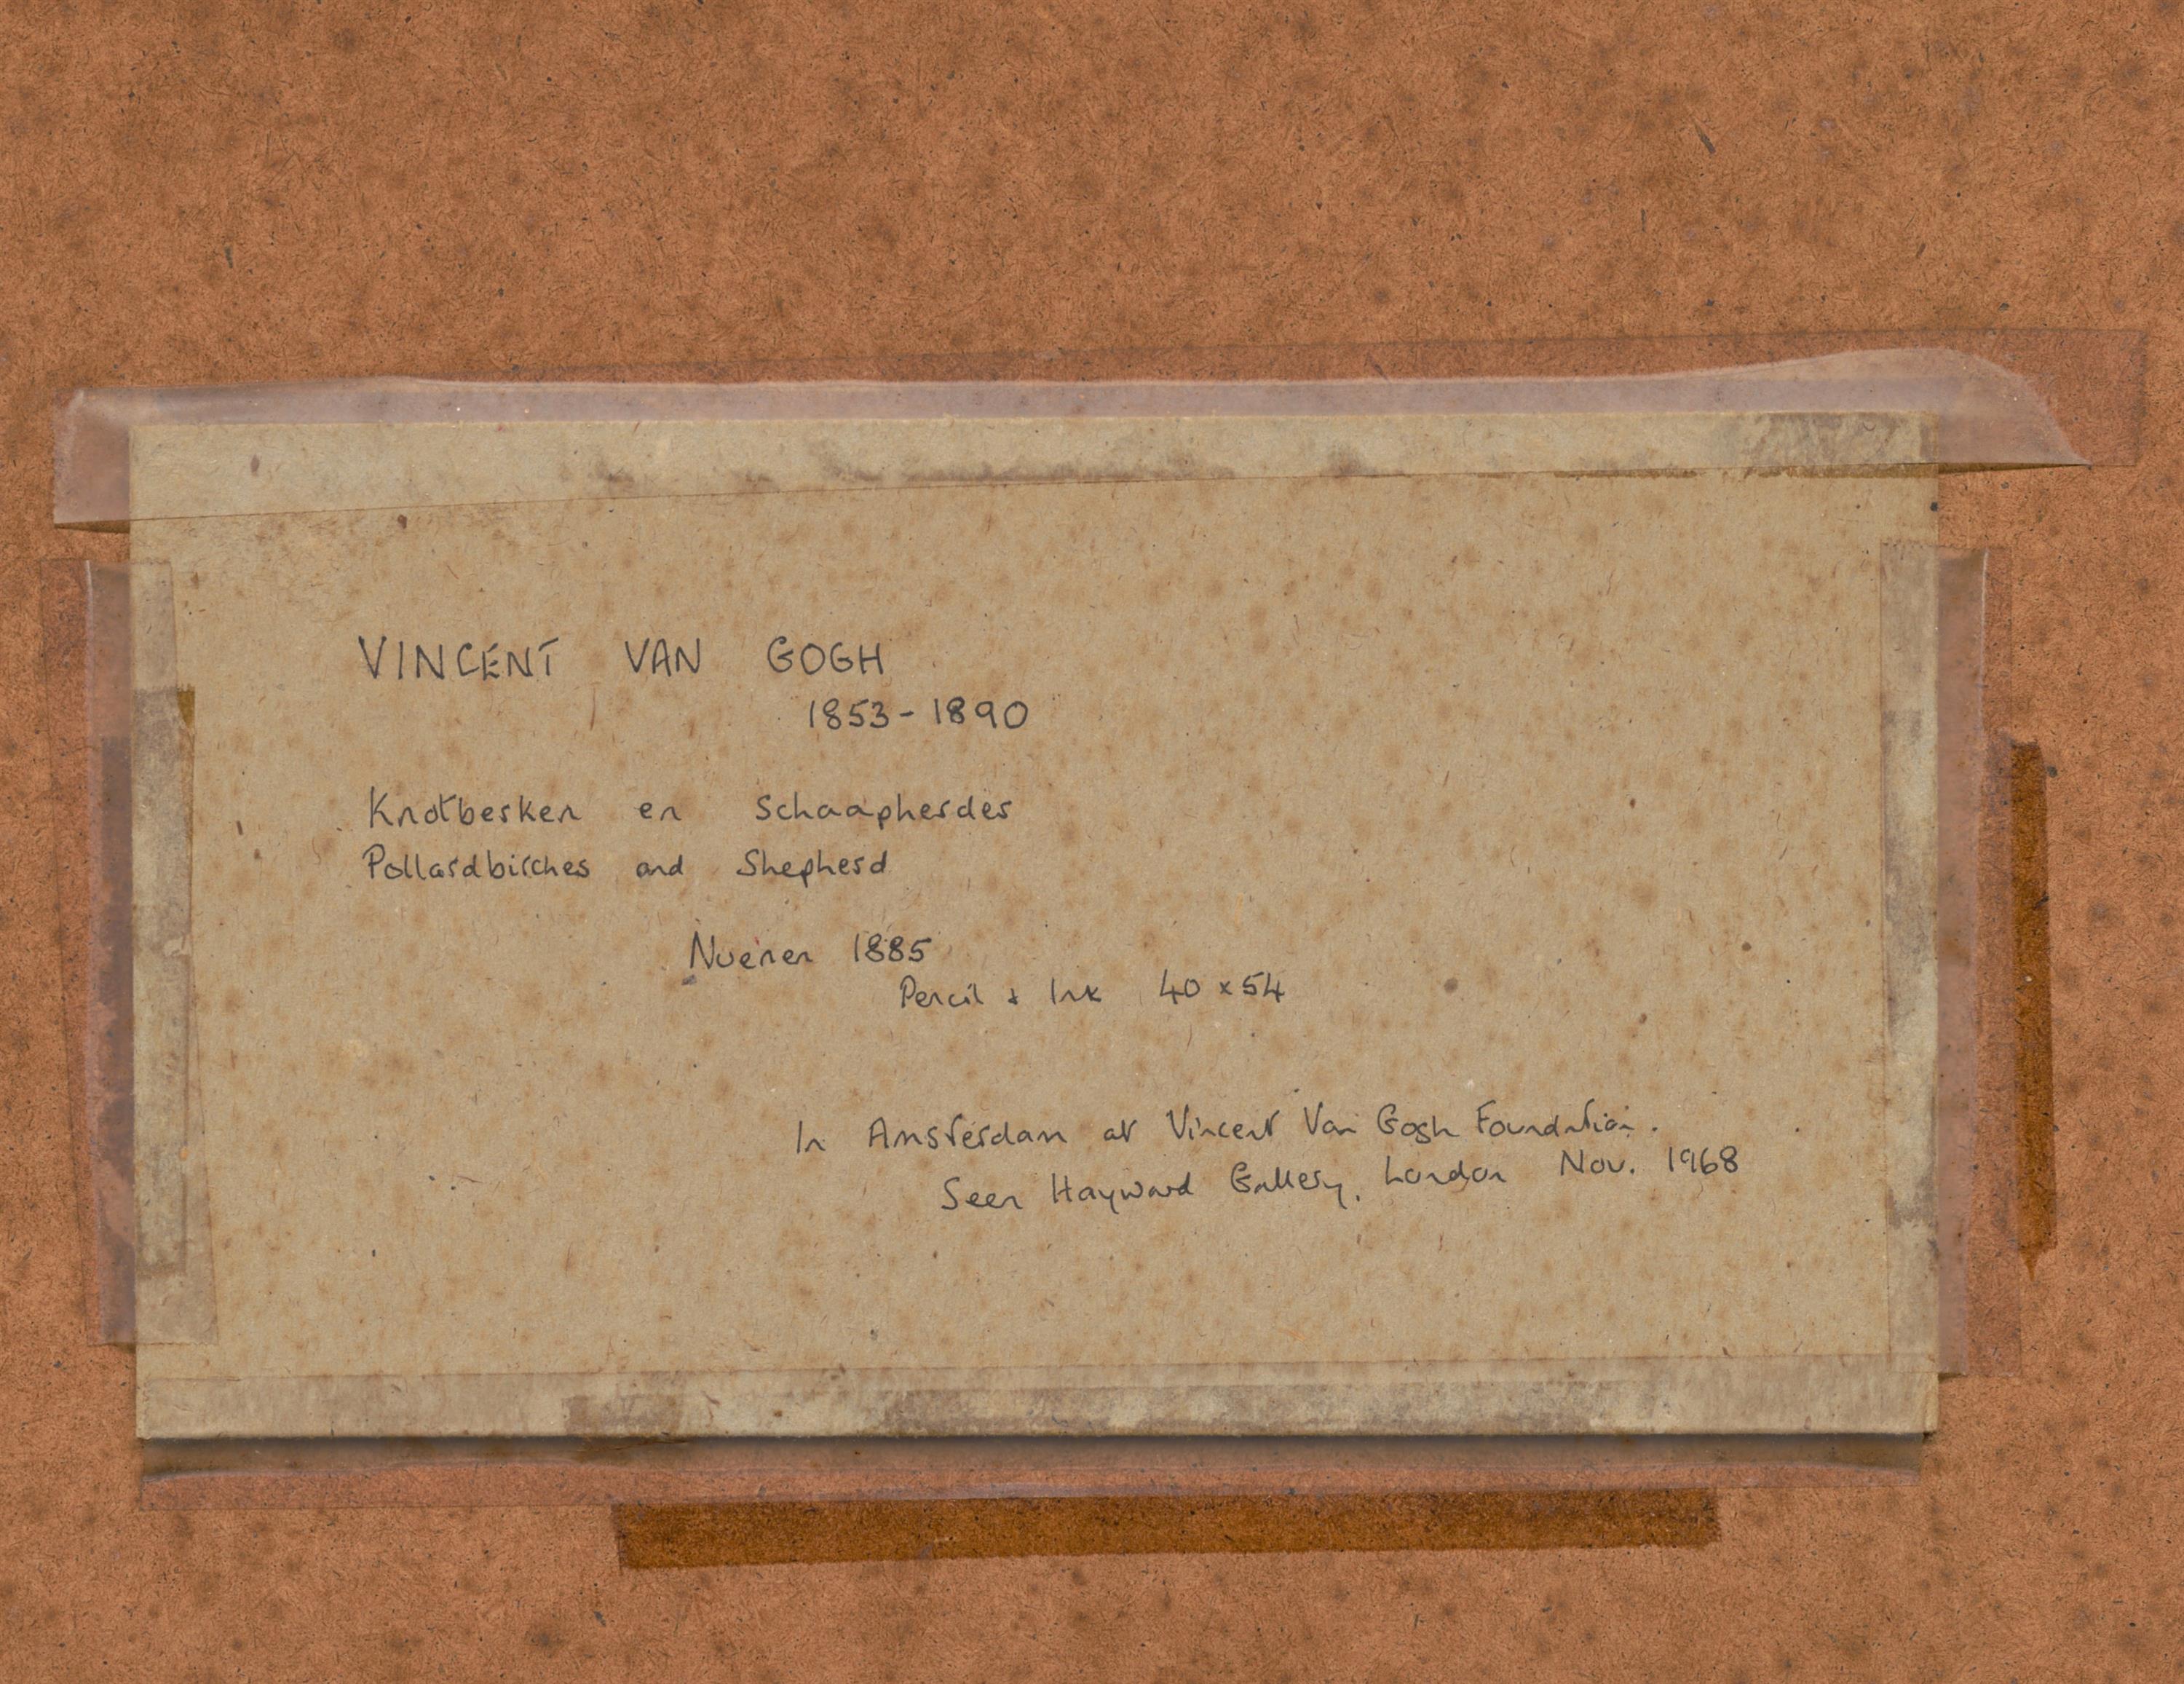 VINCENT VAN GOGH
1853-1890
Knotberken en Schaapherder
Pollardbirches and Shepherd
Nuenen 1885
Pencil & Ink 40 x 54
In Amsterdam at Vincent Van Gogh Foundation.
Seen Hayward Gallery, London Nov. 1968